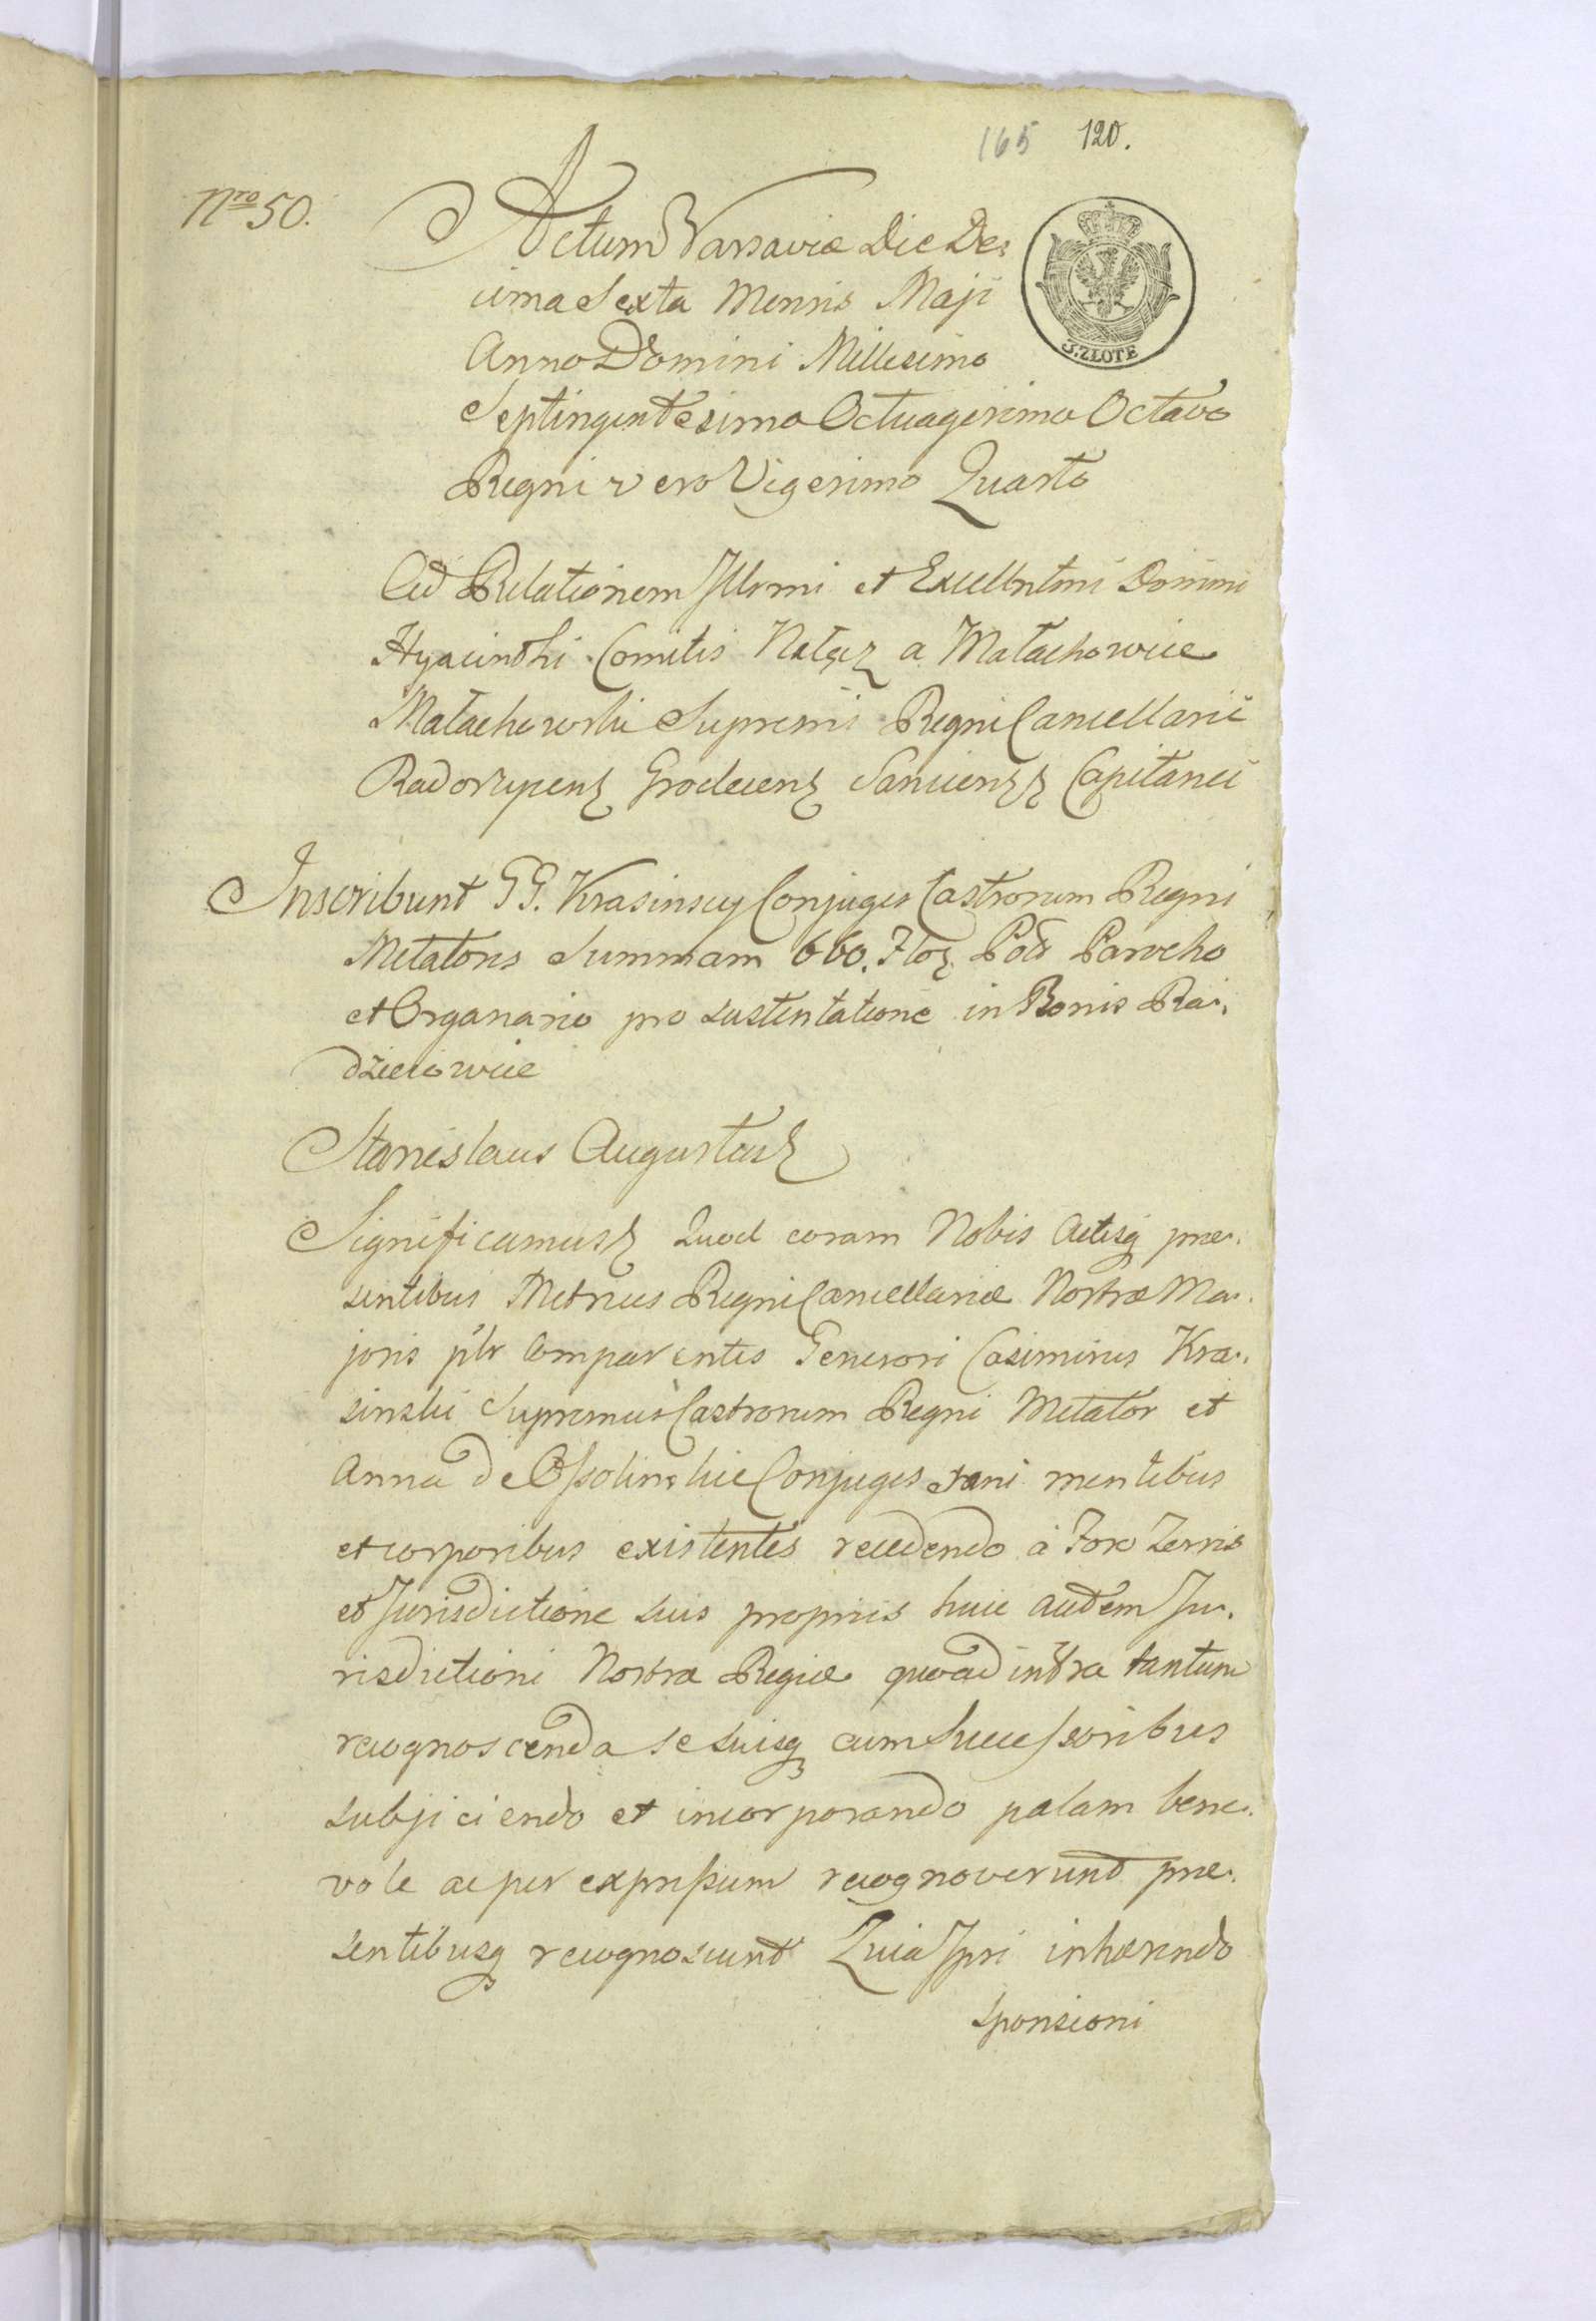 165 120.
Nro 50.
Actum Varsaviæ Die De:
cima Sexta Mensis Maji
3. ZŁOTE
Anno Domini Millesimo
Septingentesimo Octuagesimo Octavo
Regni vero Vigesimo Quarto
Ad Relationem Illrmi et Excellntmi Domini
Hyacinthi Comitis Nałęz a Małachowice
Małachowski Supremi Regni Cancellarii
Radoszycens Grodecens Sanicens Capitanei
Inscribunt GG. Krasinscy Conjuges Castrorum Regni
Metatoris Summam 660. Flor Pol Parocho
et Organario pro sustentatione in Bonis Ra:
dziejowice
Stanislaus Augustus
Significamus Quod coram Nobis Actisq præ:
sentibus Metrices Regni Cancellariæ Nostræ Ma:
joris plr Comparentes Generosi Casimirus Kra:
sinski Supremus Castrorum Regni Metator et
Anna de Ossolinskie Conjuges sani mentibus
et corporibus existentes recedendo à Foro Terris
et Jurisdictione suis propriis huic autem Ju:
risdictioni Nostræ Regiæ quoad infra tantum
recognoscenda se suisq cum Successoribus
subjiciendo et incorporando palam bene:
vole ac per expressum recognoverunt præ:
sentibusq recognoscunt Quia Ipsi inhærendo
sponsioni